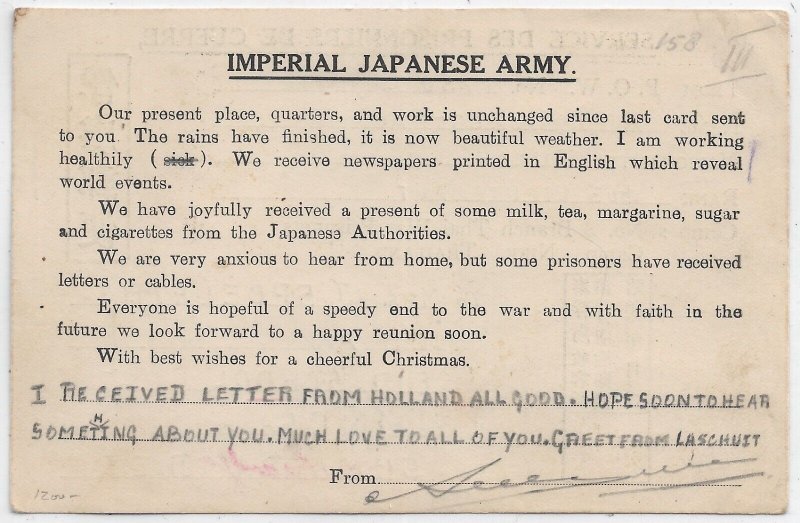 158
III
IMPERIAL JAPANESE ARMY.
Our present place, quarters, and work is unchanged since last card sent
to you. The rains have finished, it is now beautiful weather. I am working
healthily (sick). We receive newspapers printed in English which reveal
world events.
We have joyfully received a present of some milk, tea, margarine, sugar
and cigarettes from the Japanese Authorities.
We are very anxious to hear from home, but some prisoners have received
letters or cables.
Everyone is hopeful of a speedy end to the war and with faith in the
future we look forward to a happy reunion soon.
With best wishes for a cheerful Christmas.
I RECEIVED LETTER FROM HOLLAND ALL GOOD. HOPE SOON TO HEAR
SOMETHING ABOUT YOU. MUCH LOVE TO ALL OF YOU. GREET FROM LASCHUIT
From
1200-